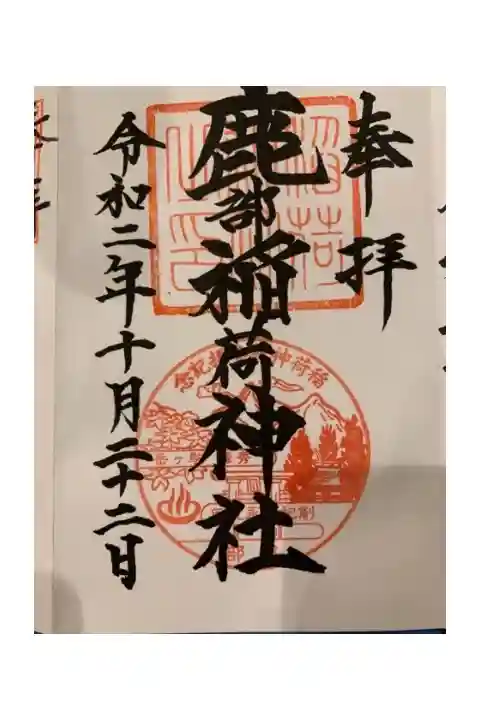 奉拝
鹿部稲荷神社
令和二年十月二十二日